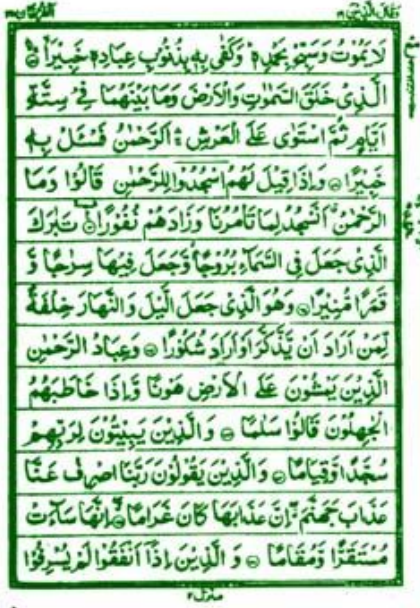 وقال الذین ۱۹
الفرقان ۲۵
لَا يَمُوْتُ وَسَبِّحْ بِحَمْدِهٖ ؕ وَكَفٰى بِهٖ بِذُنُوْبِ عِبَادِهٖ خَبِيْرًا ۚۛ
الَّذِىْ خَلَقَ السَّمٰوٰتِ وَالْاَرْضَ وَمَا بَيْنَهُمَا فِىْ سِتَّةِ
اَيَّامٍ ثُمَّ اسْتَوٰى عَلَى الْعَرْشِ ۛۚ اَلرَّحْمٰنُ فَسْـَٔلْ بِهٖ
خَبِيْرًا ۝ وَاِذَا قِيْلَ لَهُمُ اسْجُدُوْا لِلرَّحْمٰنِ قَالُوْا وَمَا
الرَّحْمٰنُ ۗ اَنَسْجُدُ لِمَا تَاْمُرُنَا وَزَادَهُمْ نُفُوْرًا ۩ تَبٰرَكَ
الَّذِىْ جَعَلَ فِى السَّمَآءِ بُرُوْجًا وَّجَعَلَ فِيْهَا سِرٰجًا وَّ
قَمَرًا مُّنِيْرًا ۝ وَهُوَ الَّذِىْ جَعَلَ الَّيْلَ وَالنَّهَارَ خِلْفَةً
لِّمَنْ اَرَادَ اَنْ يَّذَّكَّرَ اَوْ اَرَادَ شُكُوْرًا ۝ وَعِبَادُ الرَّحْمٰنِ
الَّذِيْنَ يَمْشُوْنَ عَلَى الْاَرْضِ هَوْنًا وَّاِذَا خَاطَبَهُمُ
الْجٰهِلُوْنَ قَالُوْا سَلٰمًا ۝ وَالَّذِيْنَ يَبِيْتُوْنَ لِرَبِّهِمْ
سُجَّدًا وَّقِيَامًا ۝ وَالَّذِيْنَ يَقُوْلُوْنَ رَبَّنَا اصْرِفْ عَنَّا
عَذَابَ جَهَنَّمَ ۖ اِنَّ عَذَابَهَا كَانَ غَرَامًا ۖ اِنَّهَا سَآءَتْ
مُسْتَقَرًّا وَّمُقَامًا ۝ وَالَّذِيْنَ اِذَاۤ اَنْفَقُوْا لَمْ يُسْرِفُوْا
منزل ۴